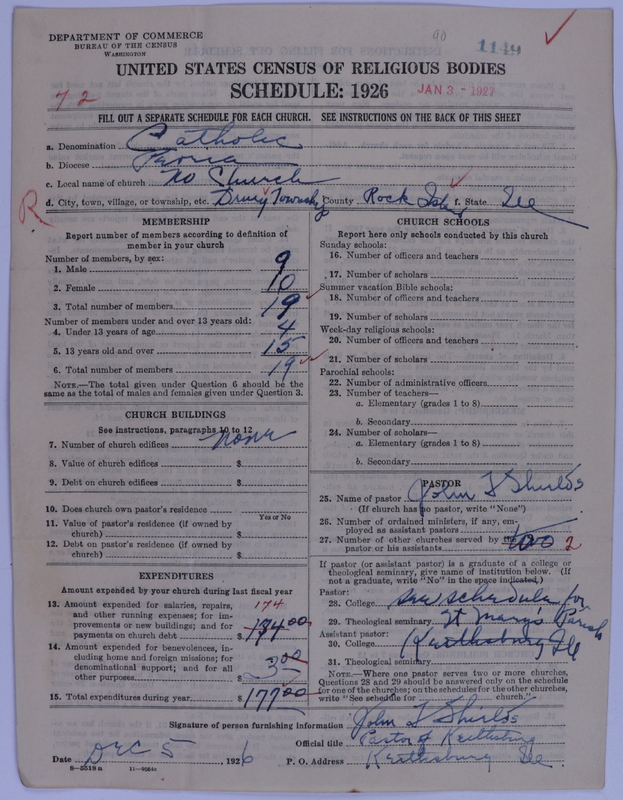 DEPARTMENT OF COMMERCE
BUREAU OF THE CENSUS
WASHINGTON
90
1144
UNITED STATES CENSUS OF RELIGIOUS BODIES
72
SCHEDULE: 1926
JAN 3 - 1927
FILL OUT A SEPARATE SCHEDULE FOR EACH CHURCH. SEE INSTRUCTIONS ON THE BACK OF THIS SHEET
a. Denomination Catholic
b. Diocese Peoria
c. Local name of church No Church
R
d. City, town, village, or township, etc. Drury Township County Rock Island f. State Ill
MEMBERSHIP
Report number of members according to definition of
member in your church
Number of members, by sex:
1. Male 9
2. Female 10
3. Total number of members 19
Number of members under and over 13 years old:
4. Under 13 years of age 4
5. 13 years old and over 15
6. Total number of members 19
NOTE.—The total given under Question 6 should be the
same as the total of males and females given under Question 3.
CHURCH BUILDINGS
See instructions, paragraphs 10 to 12
7. Number of church edifices none
8. Value of church edifices $
9. Debt on church edifices $
10. Does church own pastor's residence
Yes or No
11. Value of pastor's residence (if owned by
church) $
12. Debt on pastor's residence (if owned by
church) $
EXPENDITURES
Amount expended by your church during last fiscal year
13. Amount expended for salaries, repairs, 174
and other running expenses; for im-
provements or new buildings; and for
payments on church debt $ 174 00
14. Amount expended for benevolences, in-
cluding home and foreign missions; for
denominational support; and for all
other purposes $ 3 00
15. Total expenditures during year $ 177 00
CHURCH SCHOOLS
Report here only schools conducted by this church
Sunday schools:
16. Number of officers and teachers
17. Number of scholars
Summer vacation Bible schools:
18. Number of officers and teachers
19. Number of scholars
Week-day religious schools:
20. Number of officers and teachers
21. Number of scholars
Parochial schools:
22. Number of administrative officers
23. Number of teachers—
a. Elementary (grades 1 to 8)
b. Secondary
24. Number of scholars—
a. Elementary (grades 1 to 8)
b. Secondary
PASTOR
25. Name of pastor John F Shields
(If church has no pastor, write "None")
26. Number of ordained ministers, if any, em-
ployed as assistant pastors
27. Number of other churches served by the
pastor or his assistants two 2
If pastor (or assistant pastor) is a graduate of a college or
theological seminary, give name of institution below. (If
not a graduate, write "No" in the space indicated.)
Pastor:
28. College see schedule for
29. Theological seminary St Mary's Parish
Assistant pastor:
30. College Keithsburg Ill
31. Theological seminary
NOTE.—Where one pastor serves two or more churches,
Questions 28 and 29 should be answered only on the schedule
for one of the churches; on the schedules for the other churches,
write "See schedule for church."
Signature of person furnishing information John F Shields
Official title Pastor of Keithsburg
Date Dec 5, 1926 P. O. Address Keithsburg Ill
8—5518a 11—9564a